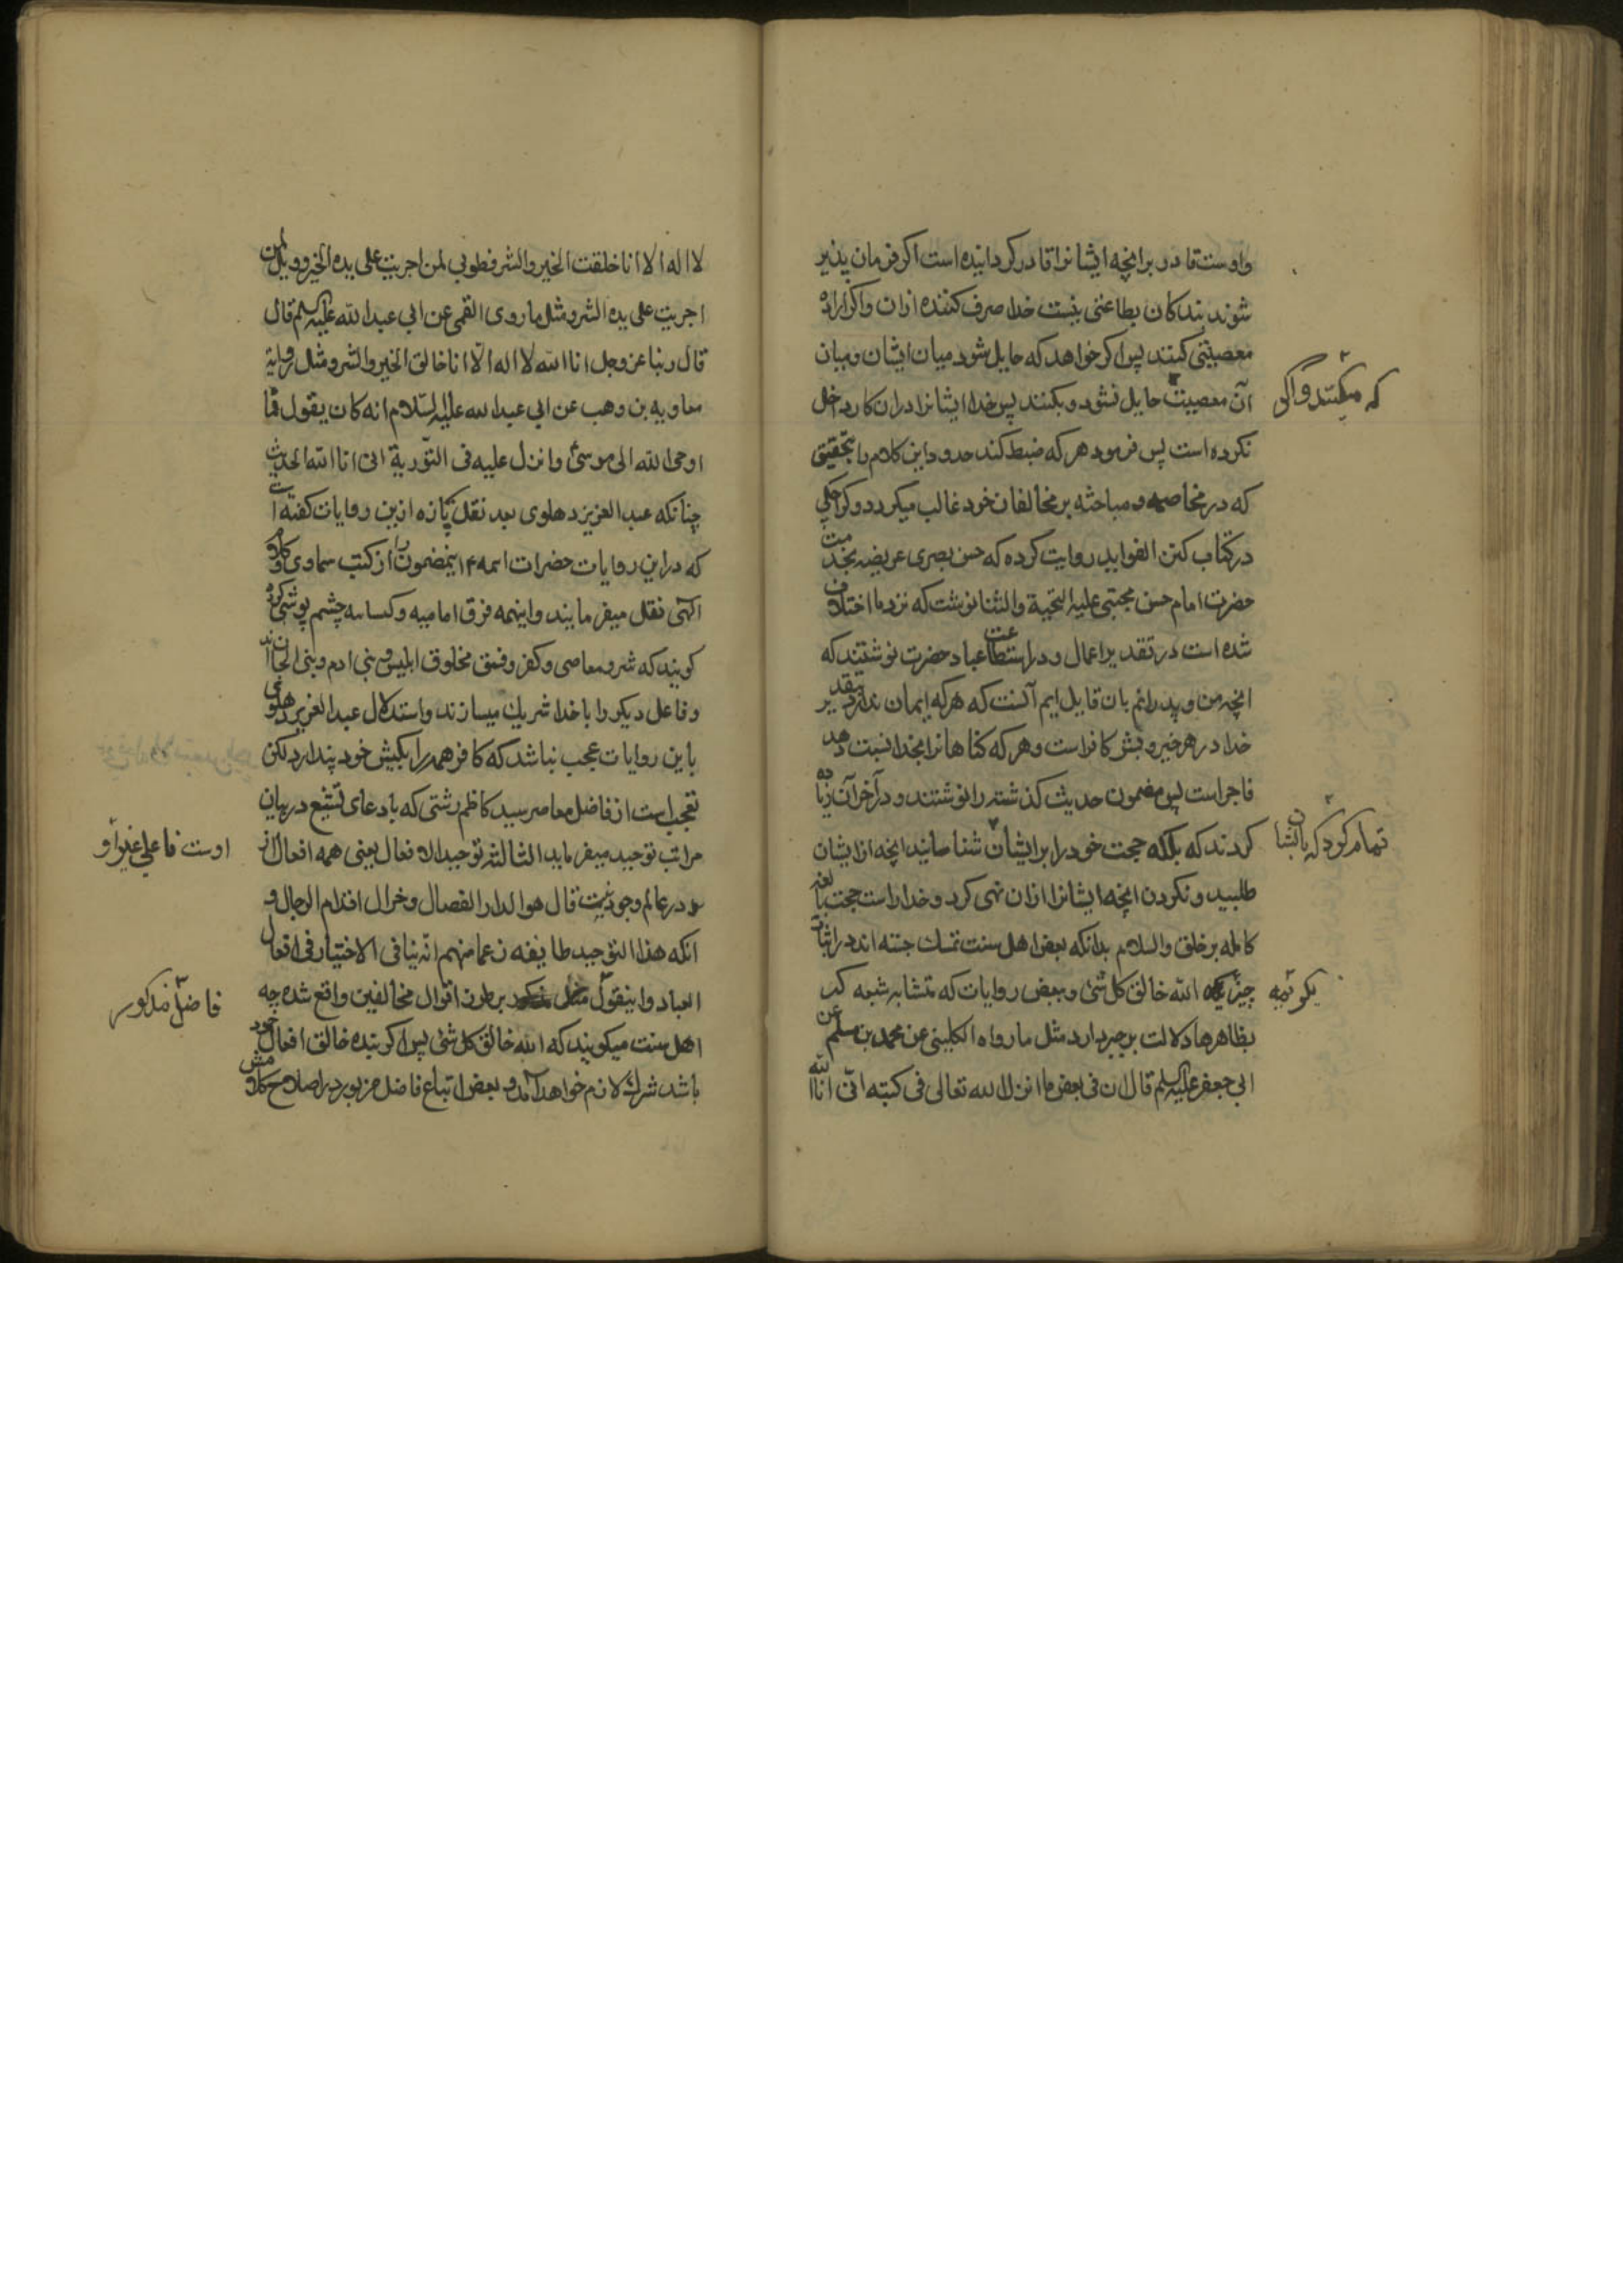 واوست قادر برانچه ایشانرا قادر کردانیده است اکر فرمان پذیر
شوند بندکان بطاعتی نیست خدا صرف کننده ازان واکر اراده
معصیتی کنند پس اکر خواهد که حایل شود میان ایشان ومیان
آن معصیت حایل نشود وبکنند پس خدا ایشانرا دران کار داخل
نکرده است پس فرمود هر که ضبط کند حدود این کلام را بتحقیق
که در مخاصمه ومباحثه بر مخالفان خود غالب میکردد وکراجکی
در کتاب کنز الفواید روایت کرده که حسن بصری عریضه بخدمت
حضرت امام حسن مجتبی علیه التحیة والثنا نوشت که نزد ما اختلاف
شده است در تقدیر اعمال ودر استطاعت عباد حضرت نوشتند که
انچه من وپدرانم بان قایل ایم آنست که هرکه ایمان ندارد بتقدیر
خدا در هر خیر وشر کافر است وهر که کناهانرا بخدا نسبت دهد
فاجر است پس مضمون حدیث کذشته را نوشتند ودر آخر آن زیاده
کردند که بلکه حجت خود را بر ایشان شناسانید انچه از ایشان
طلبید ونکردن انچه ایشانرا ازان نهی کرد وخدا راست حجت بالغه
کامله بر خلق والسلام بدانکه بعض اهل سنت تمسک جسته اند در اثبات
چیز الله خالق کل شئ وبعض روایات که متشابه شیعه که
بظاهرها دلالت بر جبر دارد مثل ما رواه الکلینی عن محمد بن مسلم عن
ابی جعفر علیه السلم قال ان فی بعض ما انزل الله تعالی فی کتبه انی انا الله
که میکنند واکر
تمام کرد که بایشان
بکریمه
لا اله الا انا خلقت الخیر والشر فطوبی لمن اجریت علی یده الخیر وویل لمن
اجریت علی یده الشر ومثل ما روی القمی عن ابی عبد الله علیه السلم قال
قال ربنا عز وجل انا الله لا اله الا انا خالق الخیر والشر ومثل روایة
معاویه بن وهب عن ابی عبد الله علیه السلام انه کان یقول مما
اوحی الله الی موسی وانزل علیه فی التوریة انی انا الله الحدیث
چنانکه عبد العزیز دهلوی بعد نقل پاره ازین روایات کفته است
که در این روایات حضرات ائمه اینمضمون را از کتب سماوی وکلام
الهی نقل میفرمایند واینهمه فرق امامیه وکیسانیه چشم پوشی کرده
کویند که شر ومعاصی وکفر وفسق مخلوق ابلیس وبنی ادم وبنی الجان اند
وفاعل دیکر را با خدا شریک میسازند واستدلال عبد العزیز دهلوی
باین روایات عجب نباشد که کافر همه را بکیش خود پندارد لکن
تعجب است از فاضل معاصر سید کاظم رشتی که بادعای تشیع در بیان
مراتب توحید میفرماید الثالثه توحید الافعال یعنی همه افعال از
در عالم وجود نیست قال هو الدار الفصال ومزال اقدام الرجال و
انکه هذا التوحید طایفه زعما منهم انه ینافی الاختیار فی افعال
العباد واینقول بر طرز اقوال مخالفین واقع شده چه
اهل سنت میکویند که الله خالق کل شئ پس اکر بنده خالق افعال خود
باشد شرک لازم خواهد آمد وبعض اتباع فاضل مزبور در اصلاح کلامش
اوست فاعلی غیر او
فاضل مذکور